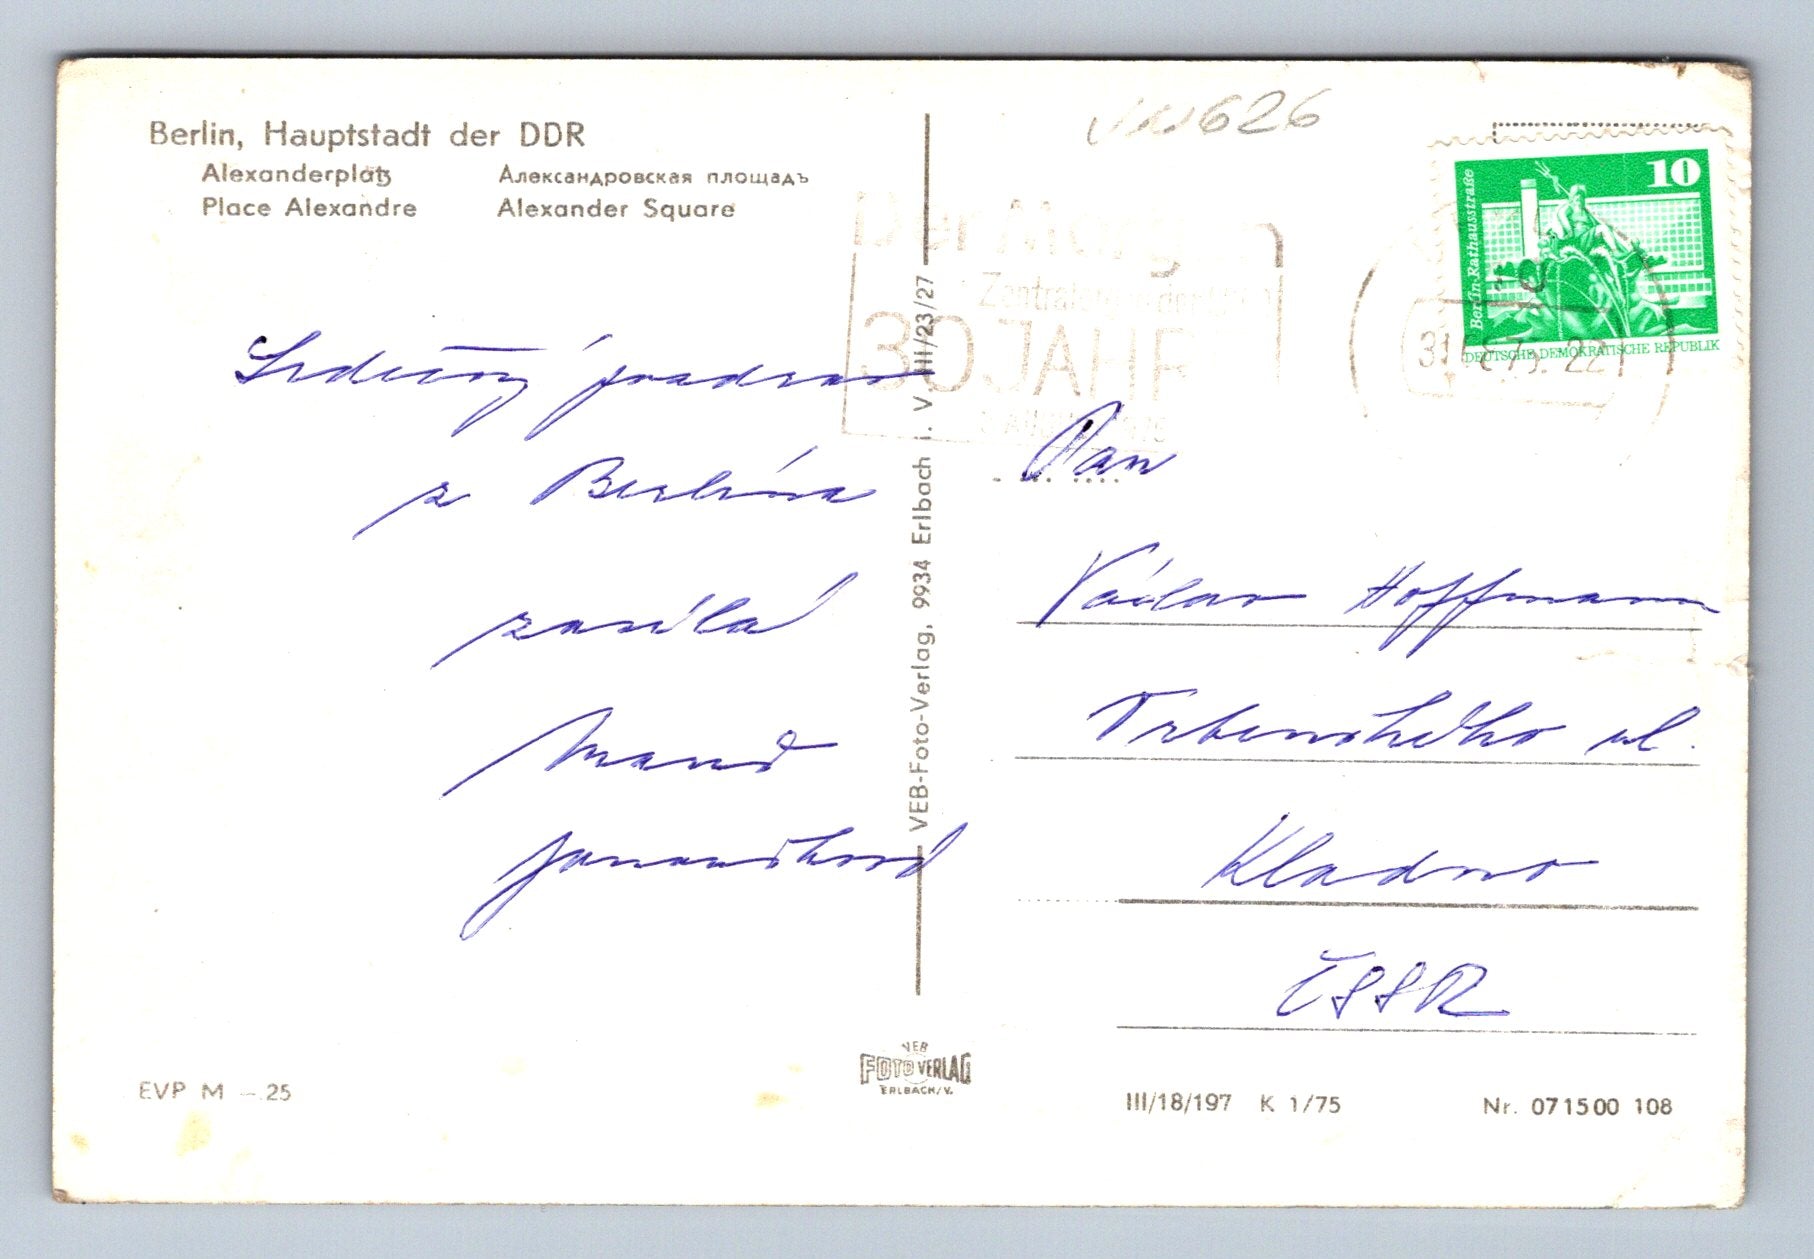 Berlin, Hauptstadt der DDR
Alexanderplatz
Александровская площадъ
Place Alexandre
Alexander Square
Srdečný pozdrav
z Berlína
zasílá
626
10
Berlin-Rathausstraße
DEUTSCHE DEMOKRATISCHE REPUBLIK
Der Morgen
30 JAHRE
VEB-Foto-Verlag, 9934 Erlbach i. V. III/23/27
Pan
Václav Hoffmann
Trbenského ul.
Kladno
ČSSR
VEB
FOTO VERLAG
ERLBACH/V.
EVP M –.25
III/18/197 K 1/75
Nr. 071500 108